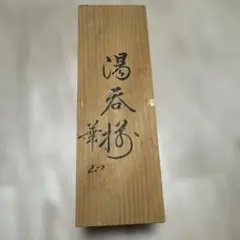 湯呑揃
華